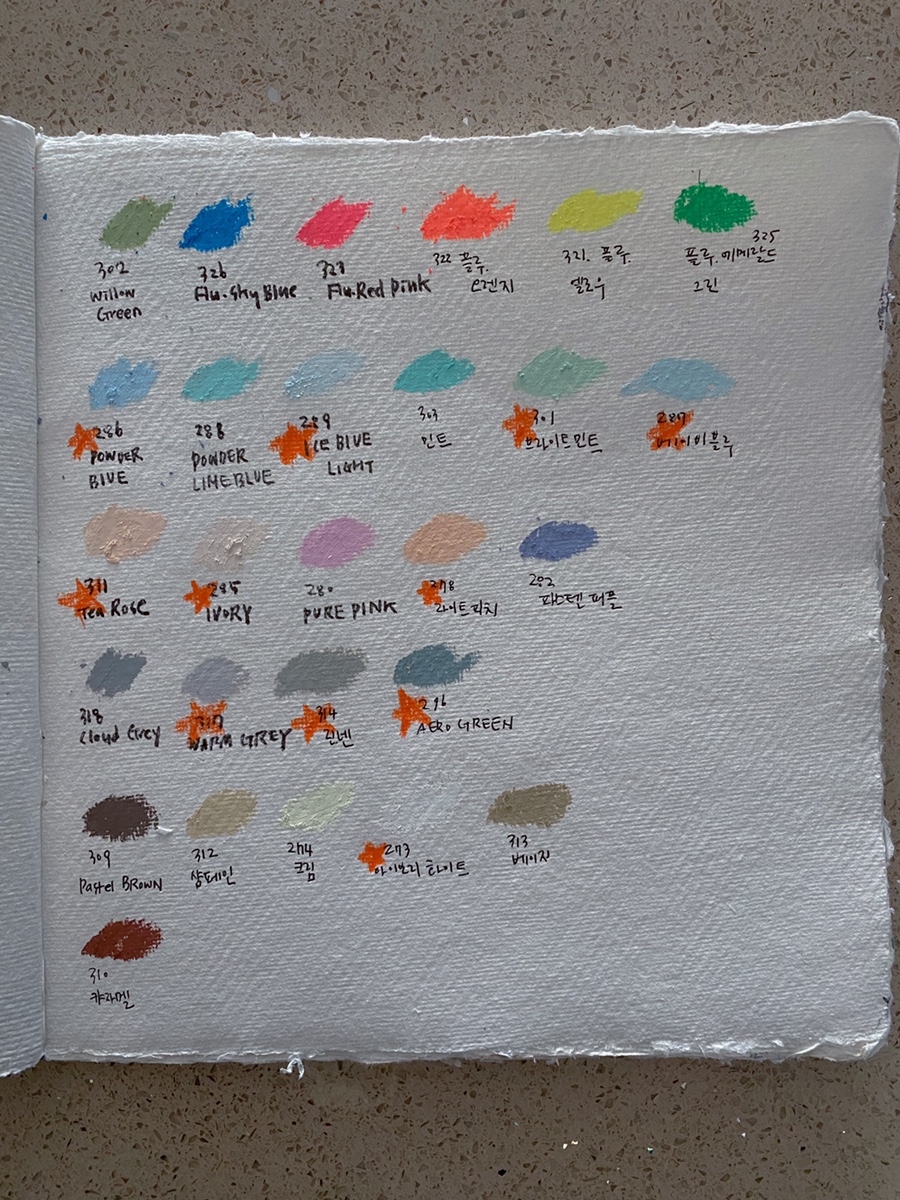 302
Willow
Green
326
Flu.Sky Blue
323
Flu.Red Pink
322 플루.
오렌지
321. 플루.
옐로우
325
플루.에메랄드
그린
286
POWDER
BLUE
288
POWDER
LIME BLUE
289
ICE BLUE
LIGHT
303
민트
301
브라이트민트
287
베이비블루
311
Tea Rose
285
IVORY
280
PURE PINK
278
라이트피치
292
파스텔 퍼플
318
Cloud Grey
317
WARM GREY
314
린넨
296
AERO GREEN
309
Pastel BROWN
312
샴페인
274
크림
273
아이보리 화이트
313
베이지
310
캬라멜